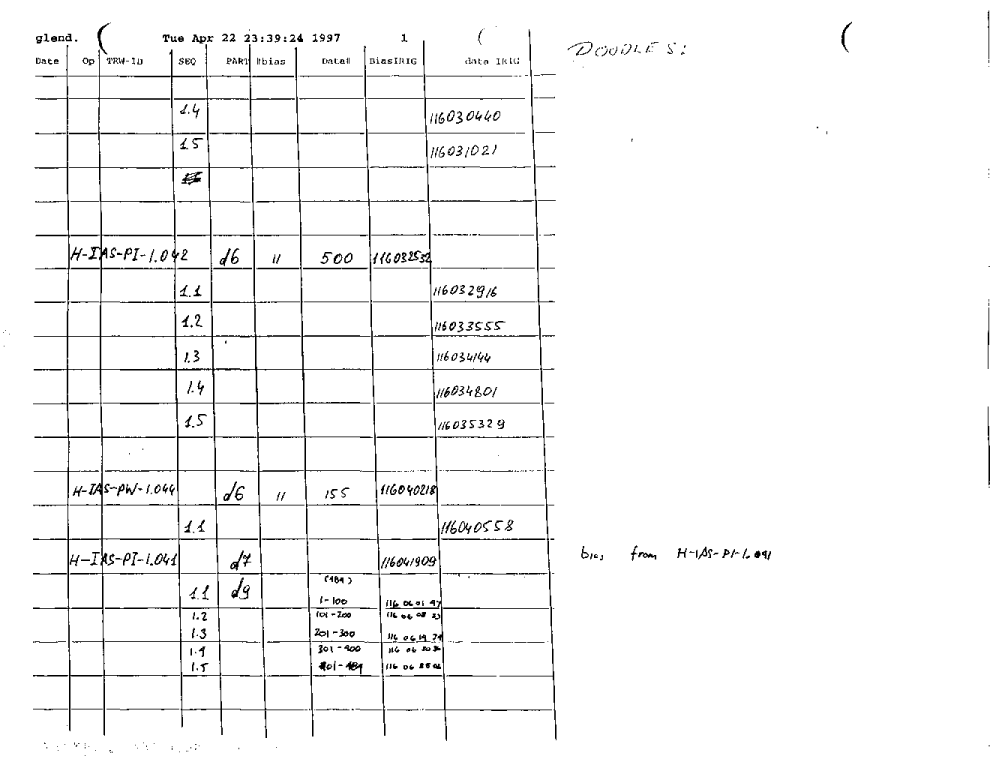 glend. ( Tue Apr 22 23:39:24 1997 1 ( (
DOODLES:
Date Op TRW-ID SEQ PART #bias Data# BiasIRIG data IRIG
1.4 116030440
1.5 116031021
H-IAS-PI-1.042 d6 11 500 116032532
1.1 116032916
1.2 116033555
1.3 116034144
1.4 116034801
1.5 116035329
H-IAS-PW-1.044 d6 11 155 116040218
1.1 116040558
H-IAS-PI-1.041 d7 116041909 bias from H-IAS-PI-1.041
(484)
1.1 d9 1-100 116 06 01 47
1.2 101-200 116 06 08 23
1.3 201-300 116 06 14
1.4 301-400 116 06
1.5 401-484 116 06